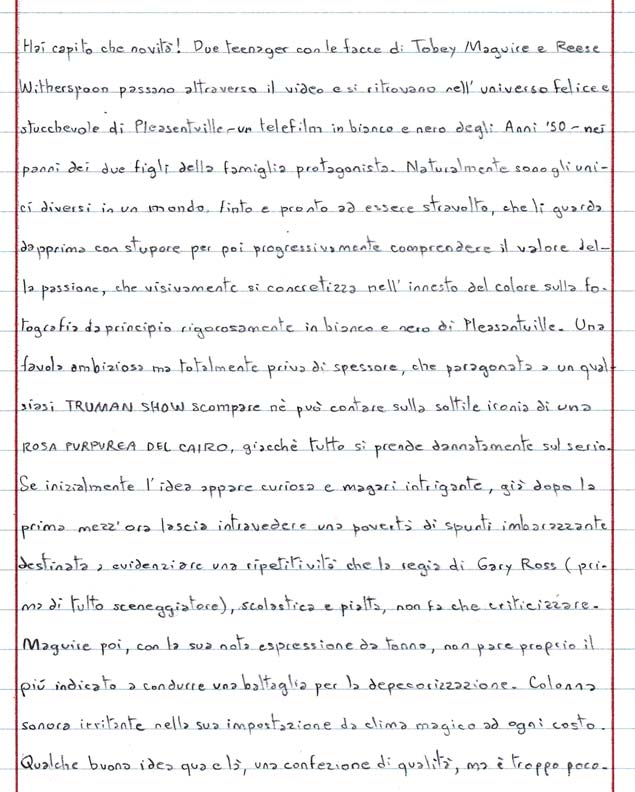 Hai capito che novità! Due teenager con le facce di Tobey Maguire e Reese
Witherspoon passano attraverso il video e si ritrovano nell'universo felice e
stucchevole di Pleasentville - un telefilm in bianco e nero degli Anni '50 - nei
panni dei due figli della famiglia protagonista. Naturalmente sono gli uni-
ci diversi in un mondo finto e pronto ad essere stravolto, che li guarda
dapprima con stupore per poi progressivamente comprendere il valore del-
la passione, che visivamente si concretizza nell'innesto del colore sulla fo-
tografia da principio rigorosamente in bianco e nero di Pleasantville. Una
favola ambiziosa ma totalmente priva di spessore, che paragonata a un qual-
siasi TRUMAN SHOW scompare nè può contare sulla sottile ironia di una
ROSA PURPUREA DEL CAIRO, giacchè tutto si prende dannatamente sul serio.
Se inizialmente l'idea appare curiosa e magari intrigante, già dopo la
prima mezz'ora lascia intravedere una povertà di spunti imbarazzante
destinata a evidenziare una ripetitività che la regia di Gary Ross (pri-
ma di tutto sceneggiatore), scolastica e piatta, non fa che criticizzare.
Maguire poi, con la sua nota espressione da tonno, non pare proprio il
più indicato a condurre una battaglia per la depecorizzazione. Colonna
sonora irritante nella sua impostazione da clima magico ad ogni costo.
Qualche buona idea qua e là, una confezione di qualità, ma è troppo poco.